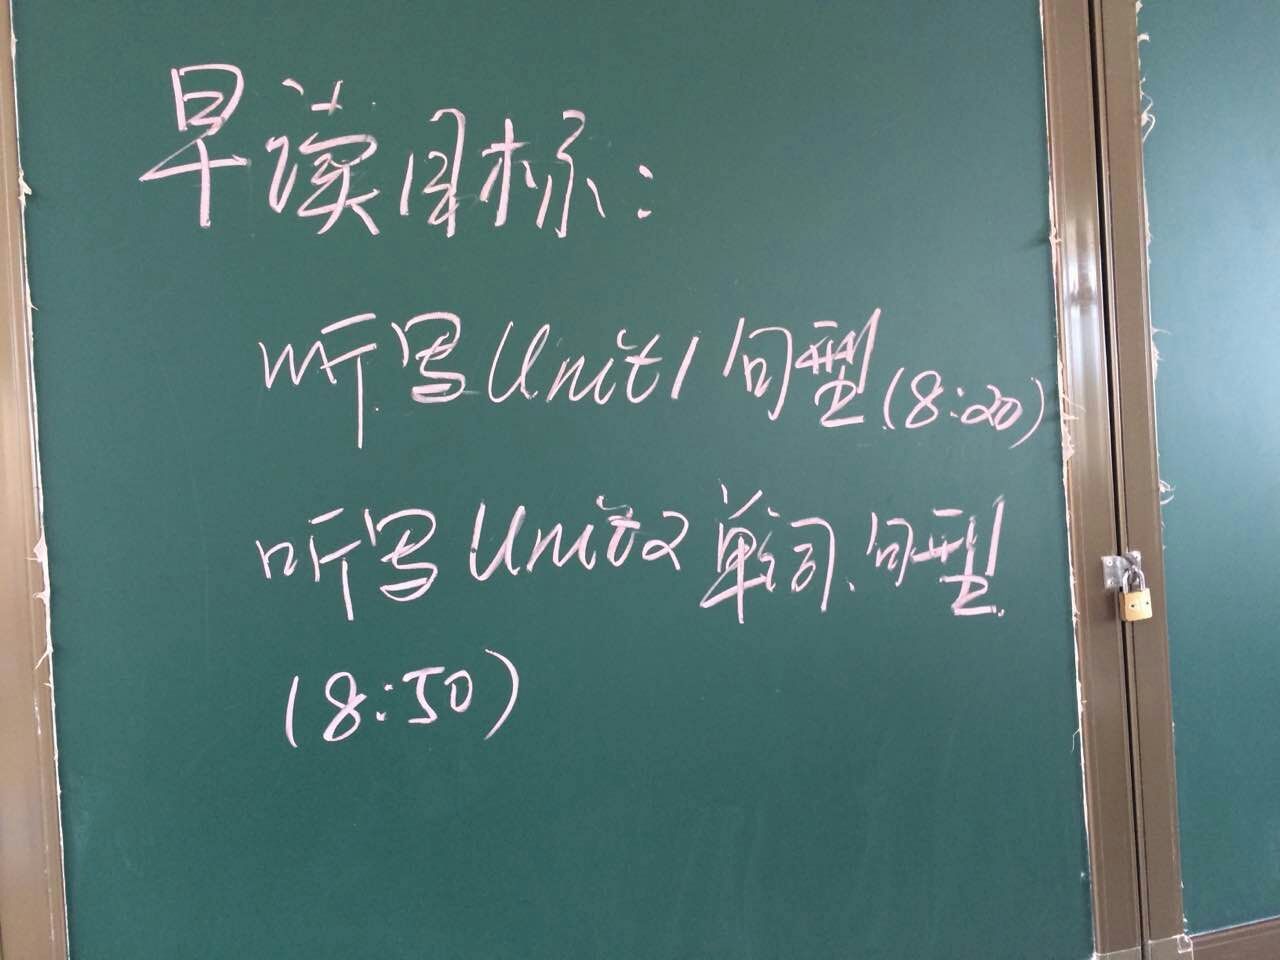 早读目标:
听写Unit1句型(8:20)
听写Unit2单词、句型
(8:50)